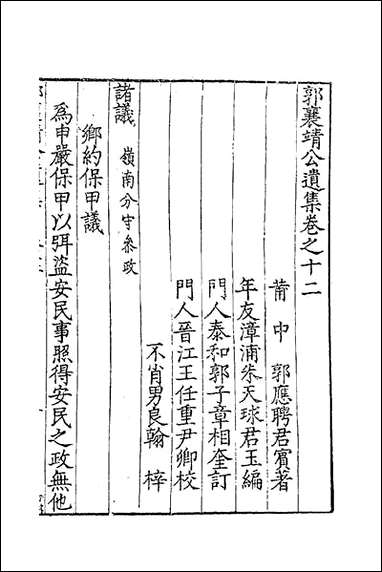 郭襄靖公遺集卷之十二
莆中郭應聘君賓著
年友漳浦朱天球君玉編
門人泰和郭子章相奎訂
門人晉江王任重尹卿校
不肖男良翰梓
諸議 嶺南分守參政
鄉約保甲議
爲申嚴保甲以弭盜安民事照得安民之政無他